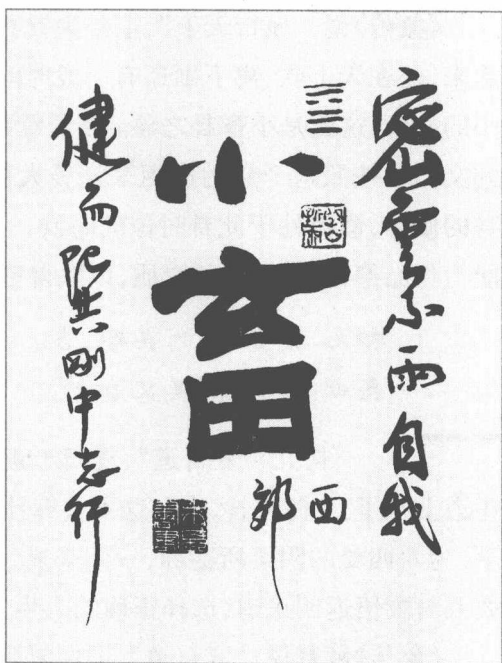 密雲不雨自我
西郊
小畜
健而巽剛中志行